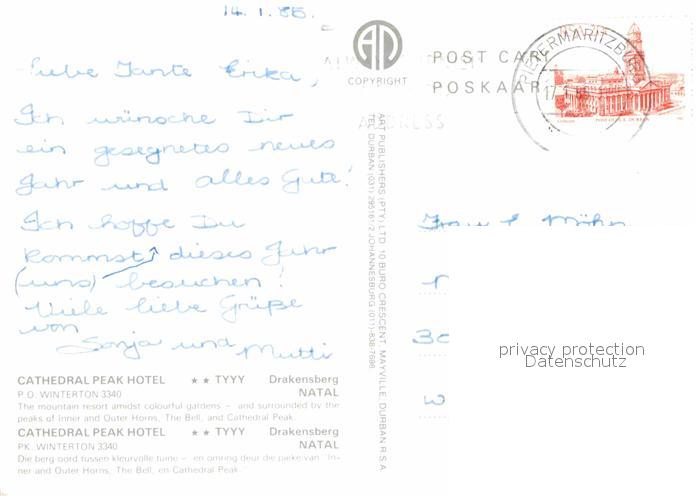 14.1.85.
Liebe Tante Erika,
Ich wünsche Dir
ein gesegnetes neues
Jahr und alles Gute!
Ich hoffe Du
kommst dieses Jahr
(uns) besuchen!
Viele liebe Grüße
von
Sonja und Mutti
CATHEDRAL PEAK HOTEL ★★ TYYY Drakensberg
P.O. WINTERTON 3340 NATAL
The mountain resort amidst colourful gardens – and surrounded by the
peaks of Inner and Outer Horns, The Bell, and Cathedral Peak.
CATHEDRAL PEAK HOTEL ★★ TYYY Drakensberg
PK. WINTERTON 3340 NATAL
Die berg oord tussen kleurvolle tuine – en omring deur die pieke van "In-
ner and Outer Horns, The Bell, en Cathedral Peak."
AN
COPYRIGHT
ART PUBLISHERS (PTY) LTD. 10 BURO CRESCENT, MAYVILLE, DURBAN R.S.A.
TEL. DURBAN (031) 295161/2 JOHANNESBURG (011)-838-7698
POST CARD
POSKAAR
ADDRESS
PIETERMARITZBURG
Frau E. Möhn
3c
w
privacy protection
Datenschutz